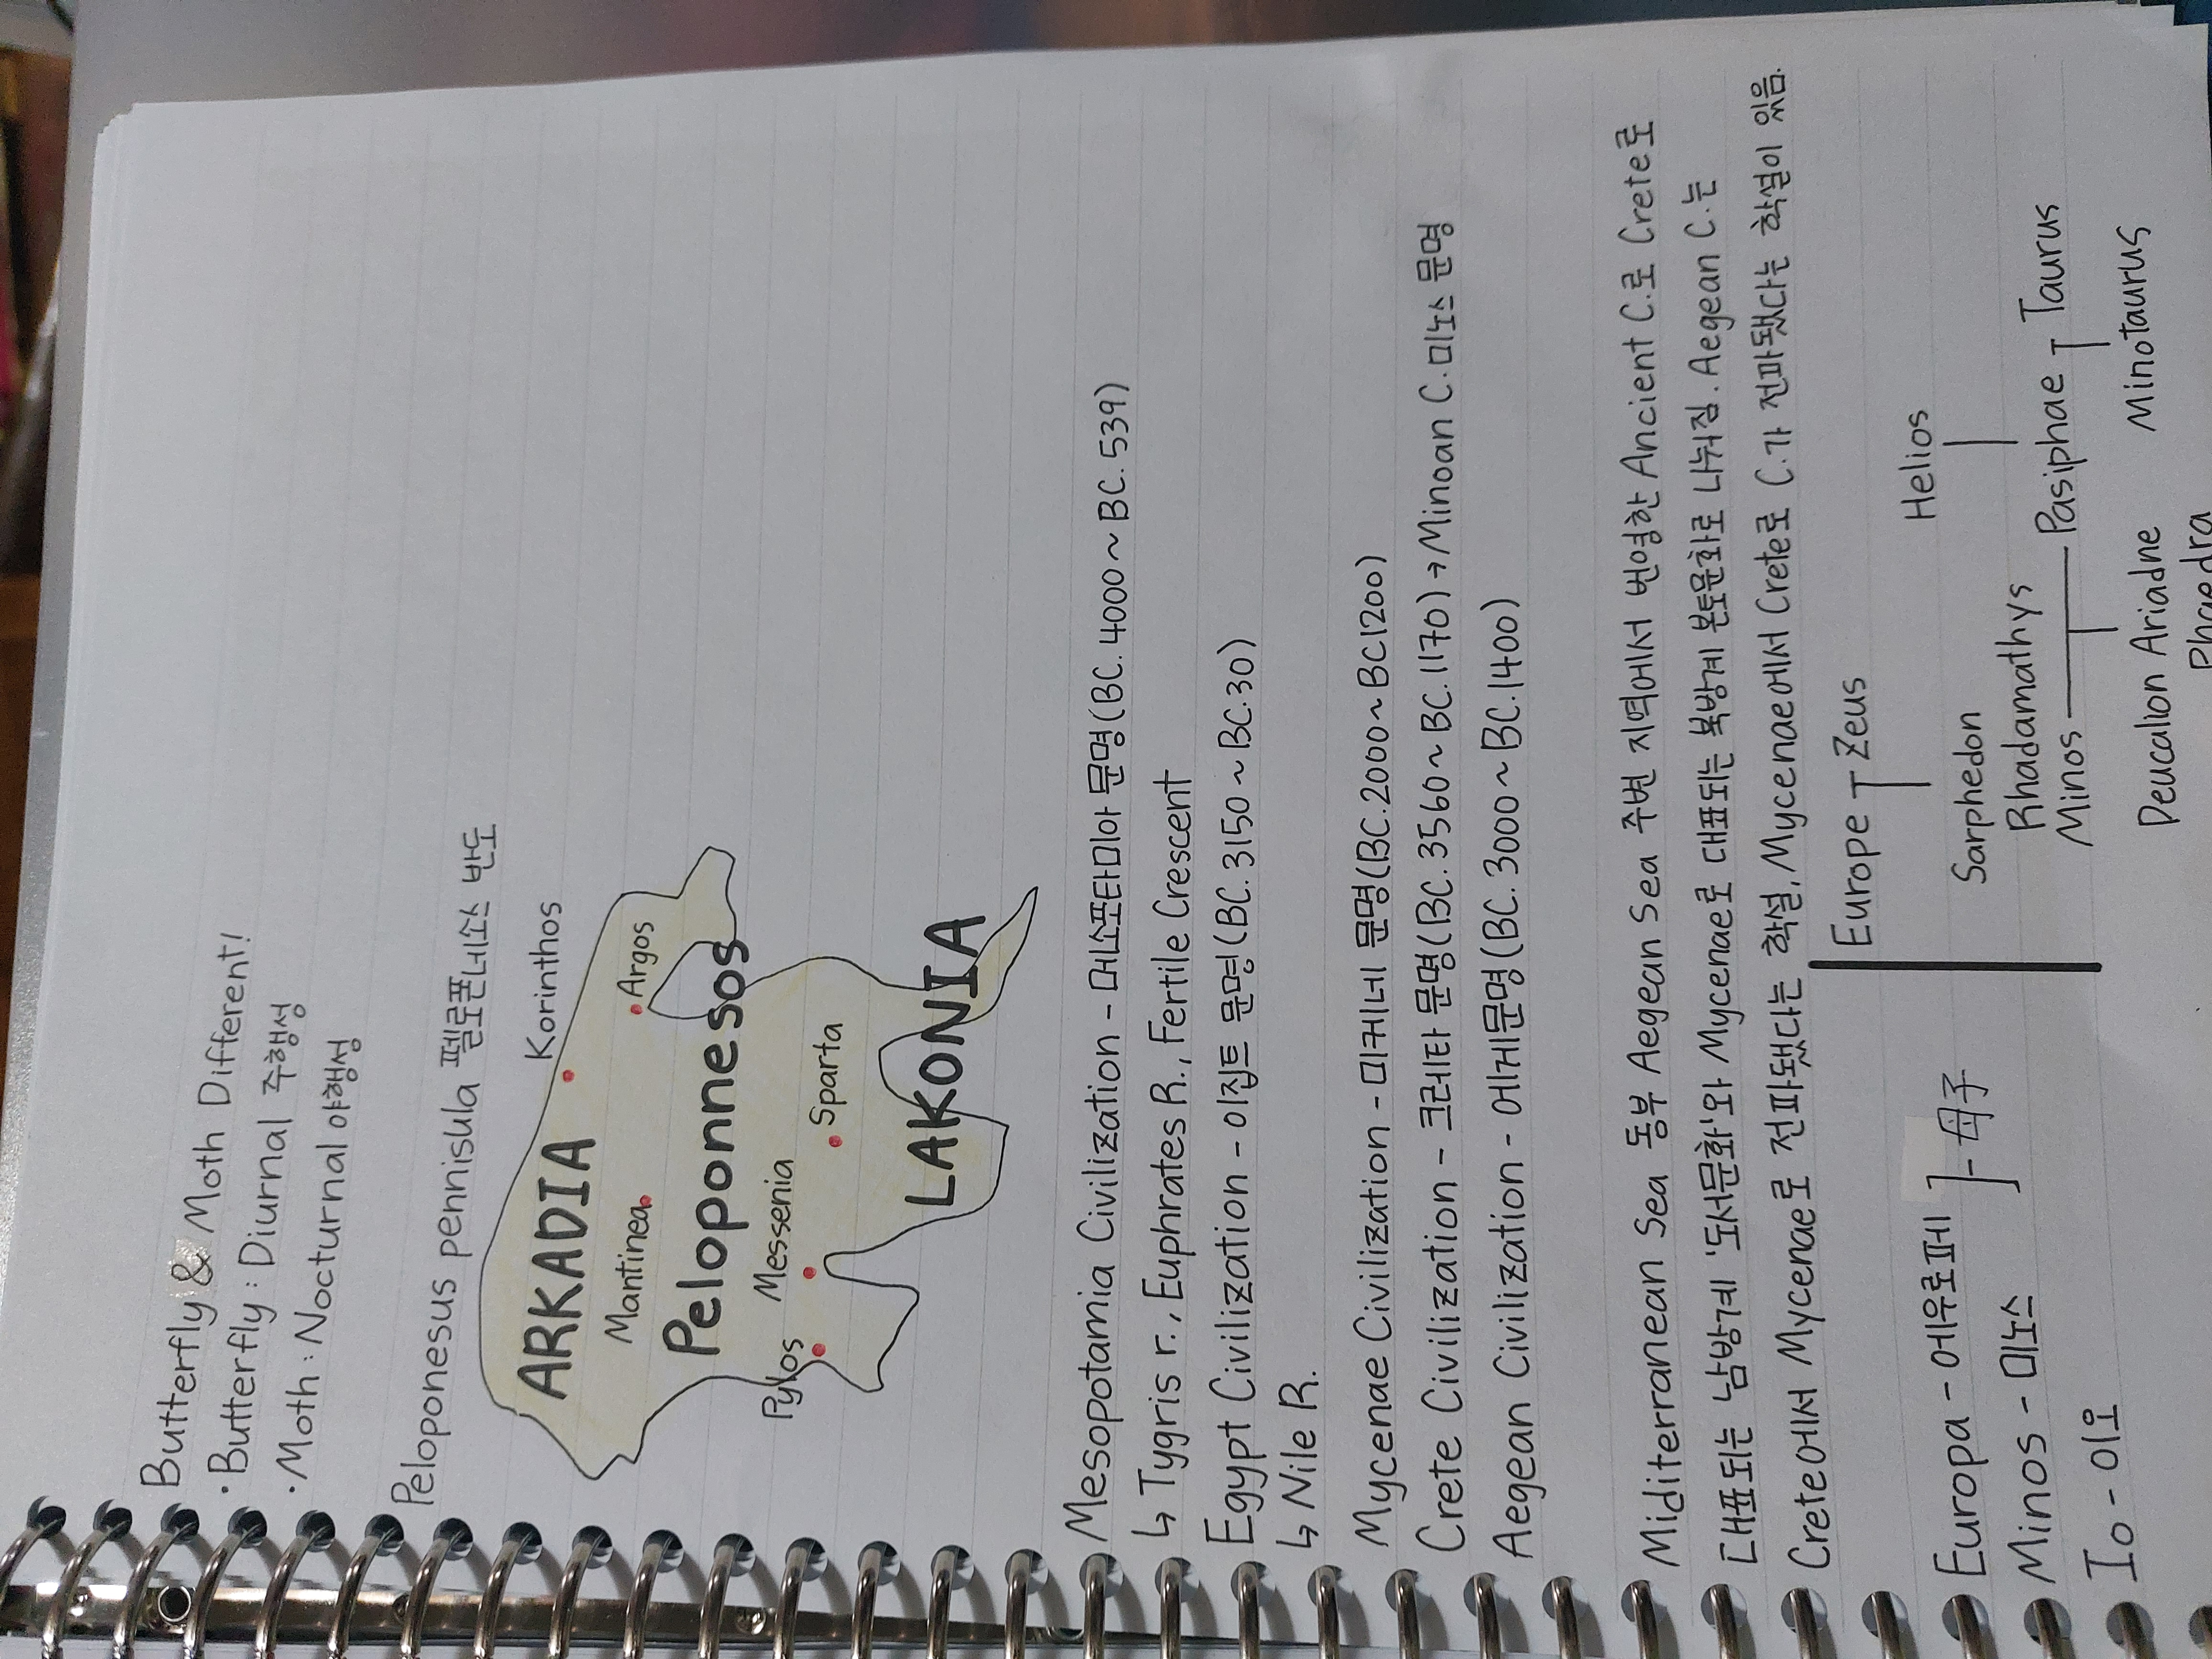 Butterfly & Moth Different!
· Butterfly : Diurnal 주행성
· Moth : Nocturnal 야행성
Peloponesus pennisula 펠로폰네소스 반도
Korinthos
ARKADIA
Argos
Mantinea
Peloponnesos
Messenia
Sparta
Pylos
LAKONIA
Mesopotamia Civilization - 메소포타미아 문명(BC. 4000 ~ BC. 539)
↳ Tygris r., Euphrates R., Fertile Crescent
Egypt Civilization - 이집트 문명(BC. 3150 ~ BC. 30)
↳ Nile R.
Mycenae Civilization - 미케네 문명(BC. 2000 ~ BC1200)
Crete Civilization - 크레타 문명(BC. 3560 ~ BC. 1170) → Minoan C. 미노스 문명
Aegean Civilization - 에게문명(BC. 3000 ~ BC. 1400)
Miditerranean Sea 동부 Aegean Sea 주변 지역에서 번영한 Ancient C.로 Crete로
대표되는 남방계 '도서문화'와 Mycenae로 대표되는 북방계 본토문화로 나눠짐. Aegean C.는
Crete에서 Mycenae로 전파됐다는 학설, Mycenae에서 Crete로 C.가 전파됐다는 학설이 있음.
Europa - 에우로페
Minos - 미노스
母子
Io - 이오
Europe Zeus
Helios
Sarphedon
Rhadamathys
Minos Pasiphae Taurus
Deucalion Ariadne Minotaurus
Phaedra